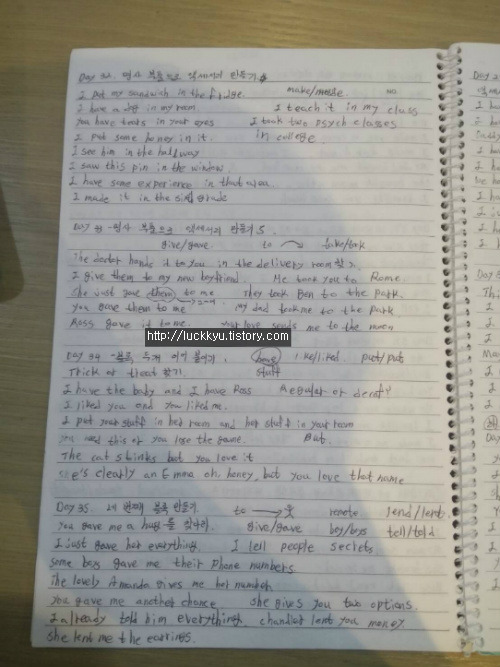 Day 32. 명사 블록으로 엑세서리 만들기
I put my sandwich in the fridge. make/made. no
I have a in my room. I teach it in my class
You have tears in your eyes I took two psych classes
I put some honey in it. in college.
I see him in the hallway
I saw this pin in the window.
I have some experience in that area.
I made it in the sixth grade
Day 33 - 명사 블록으로 엑세서리 만들기 5.
give/gave. to take/took
The doctor hands it to you in the delivery room 찾기.
I give them to my new boyfriend. He took you to Rome.
She just gave them to me They took Ben to the park.
You gave them to me my dad took me to the park
Ross gave it to me. your love sends me to the moon
http://luckkyu.tistory.com
Day 34 - 블록 두개 이어 붙이기. have like/liked. put/put
Trick or threat 찾기. stuff
I have the baby and I have Ross Regular or decaf?
I liked you and you liked me.
I put your stuff in her room and her stuff in your room
you need this or you lose the game. But.
The cat stinks but you love it
She's clearly an Emma. oh, honey, but you love that name
Day 35. 블록 만들기. to lend/lent
You gave me a hug 를 give/gave boy/boys tell/told
I just gave her everything. I tell people secrets
Some boys gave me their phone numbers
The lovely Amanda gives me her number.
You gave me another chance She gives you two options.
I already told him everything chandler lent you money
She lent me the earrings.